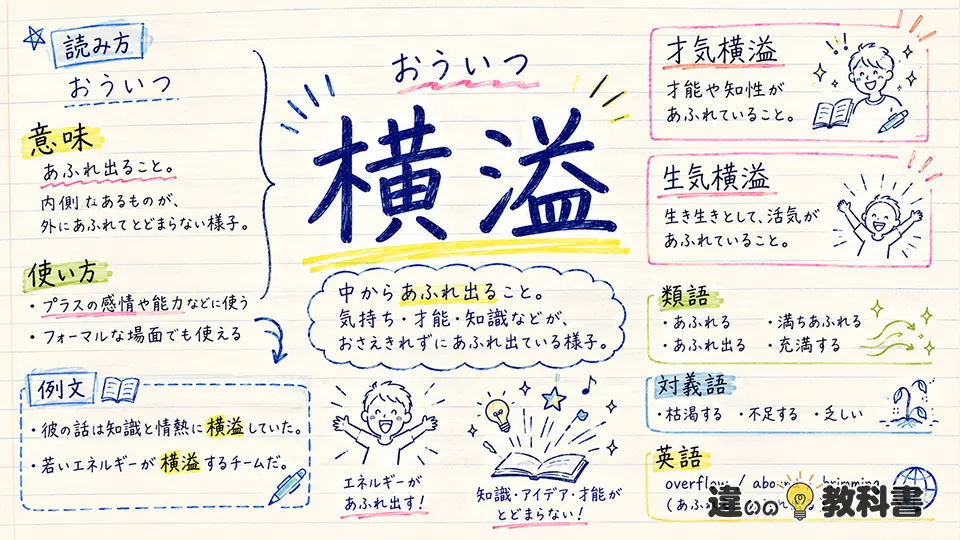 読み方
おういつ
意味
あふれ出ること。
内側なあるものが、
外にあふれてとどまらない様子。
使い方
・プラスの感情や能力などに使う
・フォーマルな場面でも使える
例文
・彼の話は知識と情熱に横溢していた。
・若いエネルギーが横溢するチームだ。
おういつ
横溢
中からあふれ出ること。
気持ち・才能・知識などが、
おさえきれずにあふれ出ている様子。
エネルギーが
あふれ出す!
知識・アイデア・才能が
とどまらない!
才気横溢
才能や知性が
あふれていること。
生気横溢
生き生きとして、活気が
あふれていること。
類語
・あふれる ・満ちあふれる
・あふれ出る ・充満する
対義語
・枯渇する ・不足する ・乏しい
英語
overflow / brimming
(あふ
違いの教科書